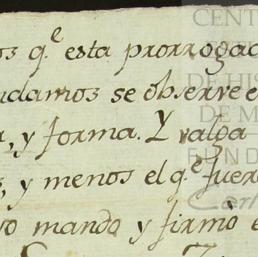 os q.^e esta prorrogac
udamos se observe e
, y forma. Y valga
, y menos el q.^e fuer
vo mando y firmo e
CENT
DE HIS
DE M
FUND